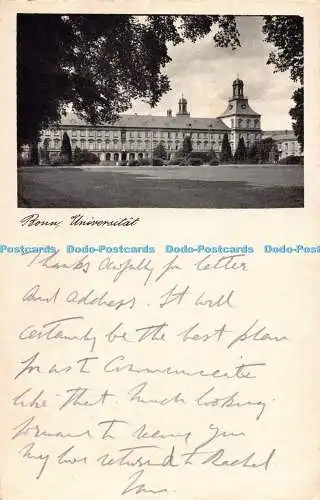 Bonn, Universität
Dodo-Postcards Dodo-Postcards Dodo-Postcards Dodo-Postcards Dodo-Postcards
Thanks awfully for letter
and address. It will
certainly be the best plan
for us to communicate
like that. Much looking
forward to seeing you
My love returned to Rachel